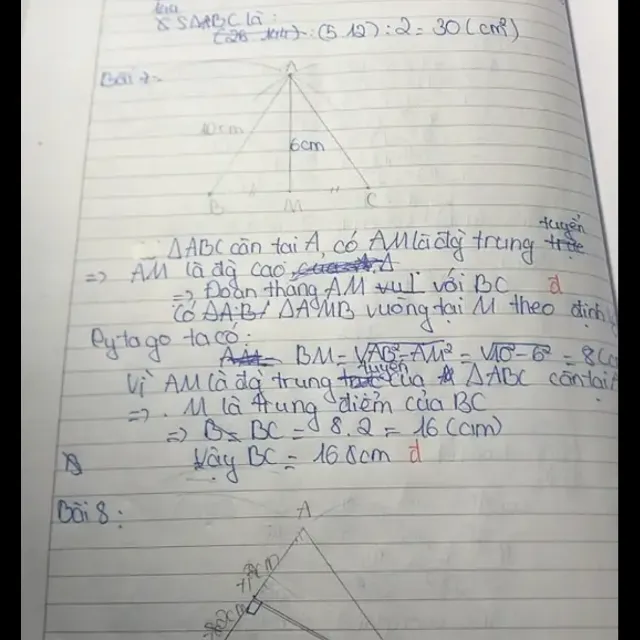 S SΔABC là:
(5.12) : 2 = 30 (cm²)
Bài 7:
A
10cm
6cm
B M C
ΔABC cân tại A, có AM là đg trung tuyến
=> AM là đg cao
=> Đoạn thẳng AM vuông với BC đ
Có ΔAMB vuông tại M theo định
Pytago ta có:
BM = √AB²-AM² = √10²-6² = 8(cm
Vì AM là đg trung tuyến của ΔABC cân tại
=> M là trung điểm của BC
=> BC = 8.2 = 16 (cm)
Vậy BC = 16 cm đ
Bài 8:
A